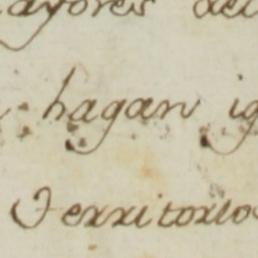 ayores del
hagan ig
Territorio